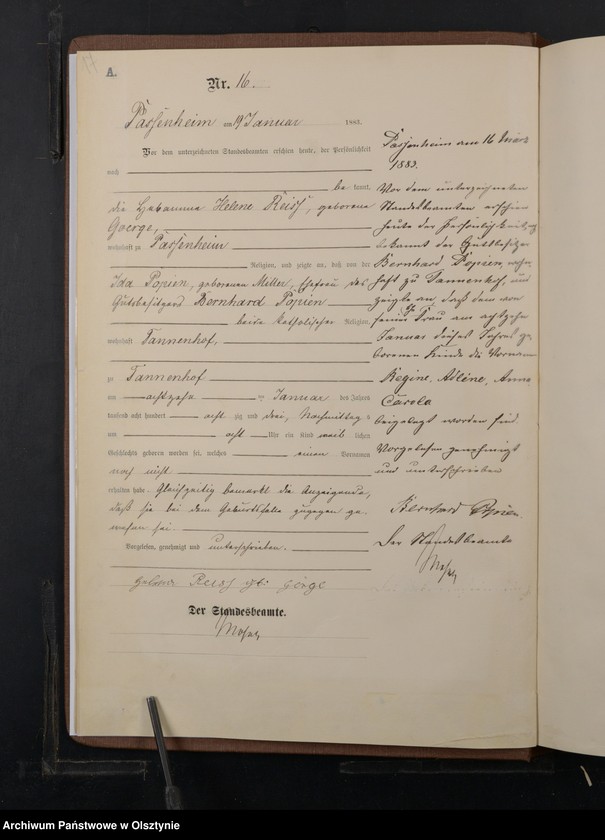 A.
Nr. 16.
Passenheim am 19 Januar 1883.
Vor dem unterzeichneten Standesbeamten erschien heute, der Persönlichkeit
nach
be kannt,
die Hebamme Helene Reiss, geborene
Goerge,
wohnhaft zu Passenheim
Religion, und zeigte an, daß von der
Ida Popien, geborenen Ehefrau des
Gutsbesitzers Bernhard Popien
beide katholischer Religion,
wohnhaft Tannenhof,
zu Tannenhof
am achtzehn ten Januar des Jahres
tausend acht hundert acht zig und drei, Nachmittag s
um acht Uhr ein Kind weib lichen
Geschlechts geboren worden sei, welches einen Vornamen
noch nicht
erhalten habe. Gleichzeitig bemerkt die Anzeigende,
daß sie bei dem Geburtsfalle zugegen ge-
wesen sei.
Vorgelesen, genehmigt und unterschrieben.
Helene Reiss geb: Görge
Der Standesbeamte.
Passenheim am 16 März
1883.
Vor dem unterzeichneten
Standesbeamten erschien
heute der Persönlichkeit nach
bekannt der Gutsbesitzer
Bernhard Popien, wohn-
haft zu Tannenhof, und
zeigte an, daß dem von
seiner Frau am achtzehn
Januar dieses Jahres ge-
borenen Kinde die Vornamen
Regine, Anna
Carola
beigelegt worden sind.
Vorgelesen genehmigt
und unterschrieben
Bernhard Popien.
Der Standesbeamte
Archiwum Państwowe w Olsztynie